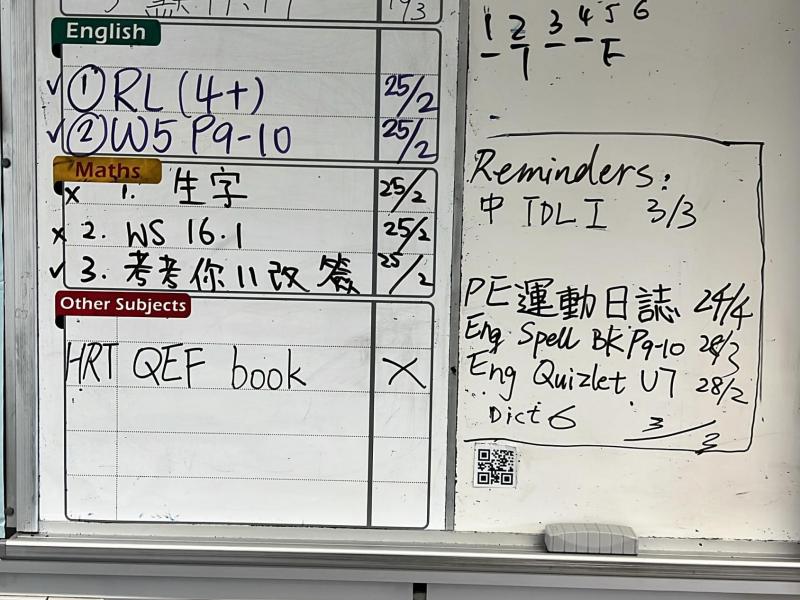 English
① RL (4+) 25/2
② W5 P9-10 25/2
Maths
1. 生字 25/2
2. WS 16.1 25/2
3. 考考你11改簽 25/2
Other Subjects
HRT QEF book X
1 2 3 4 5 6
T E
Reminders:
中 TDL I 3/3
PE運動日誌 24/4
Eng Spell BK P9-10 28/3
Eng Quizlet U7 28/2
Dict 6 3/3